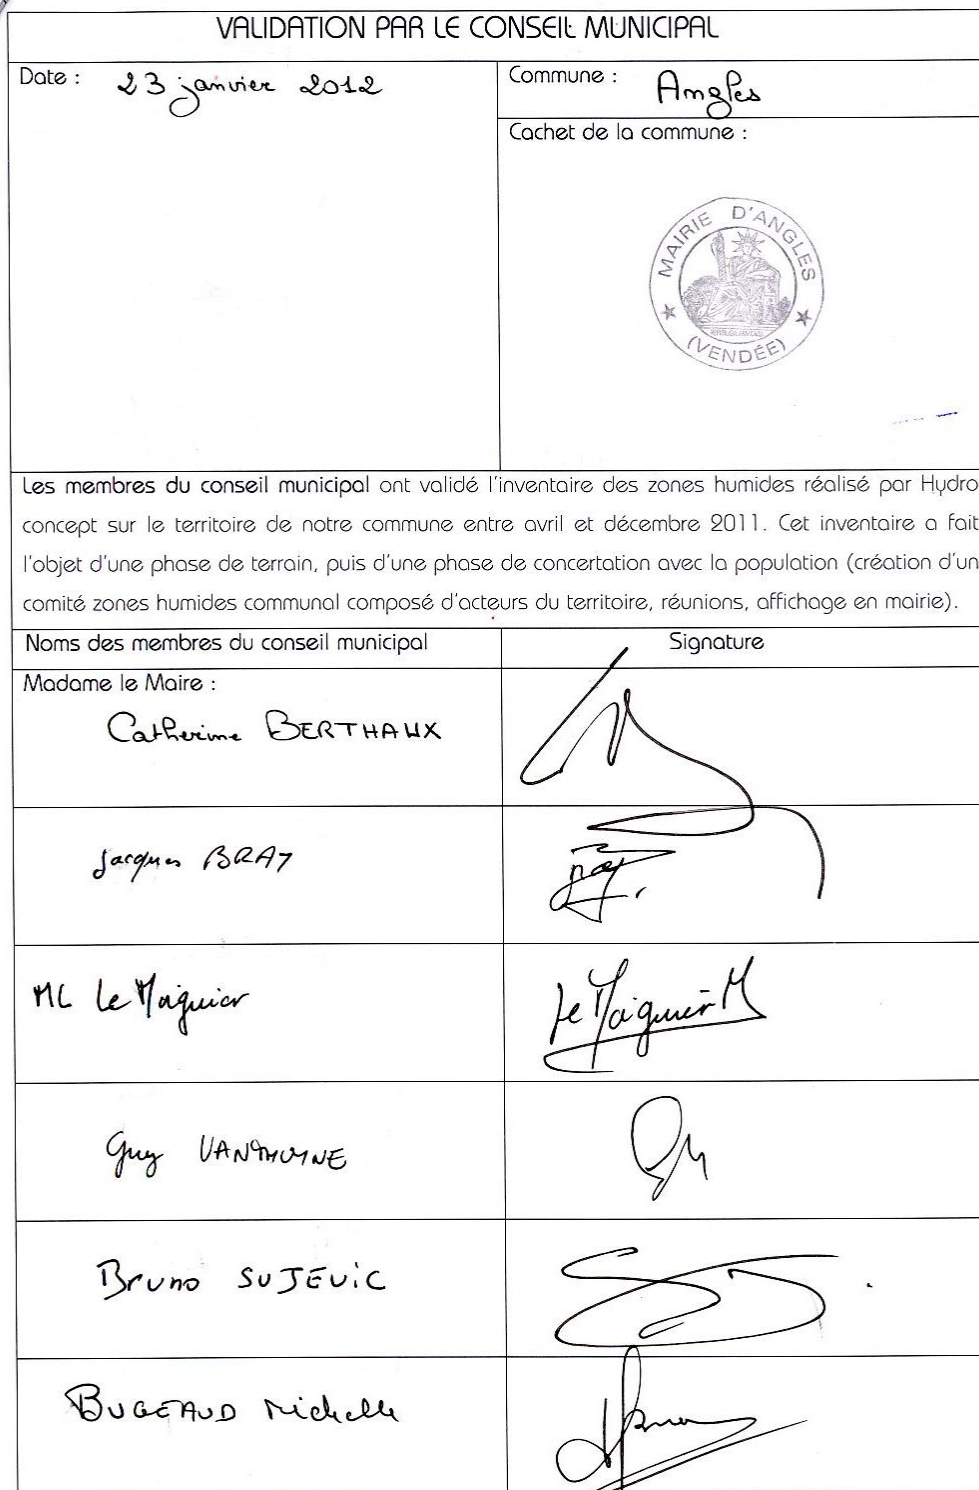 VALIDATION PAR LE CONSEIL MUNICIPAL
Date : 23 janvier 2012
Commune : Angles
Cachet de la commune :
MAIRIE D'ANGLES
(VENDÉE)
Les membres du conseil municipal ont validé l'inventaire des zones humides réalisé par Hydro
concept sur le territoire de notre commune entre avril et décembre 2011. Cet inventaire a fait
l'objet d'une phase de terrain, puis d'une phase de concertation avec la population (création d'un
comité zones humides communal composé d'acteurs du territoire, réunions, affichage en mairie).
Noms des membres du conseil municipal
Signature
Madame le Maire :
Catherine BERTHAUX
Jacques BRAY
ML Le Maiguier
Le Maiguier M
Guy VANTHUYNE
Bruno SUJEVIC
BUGEAUD Michelle